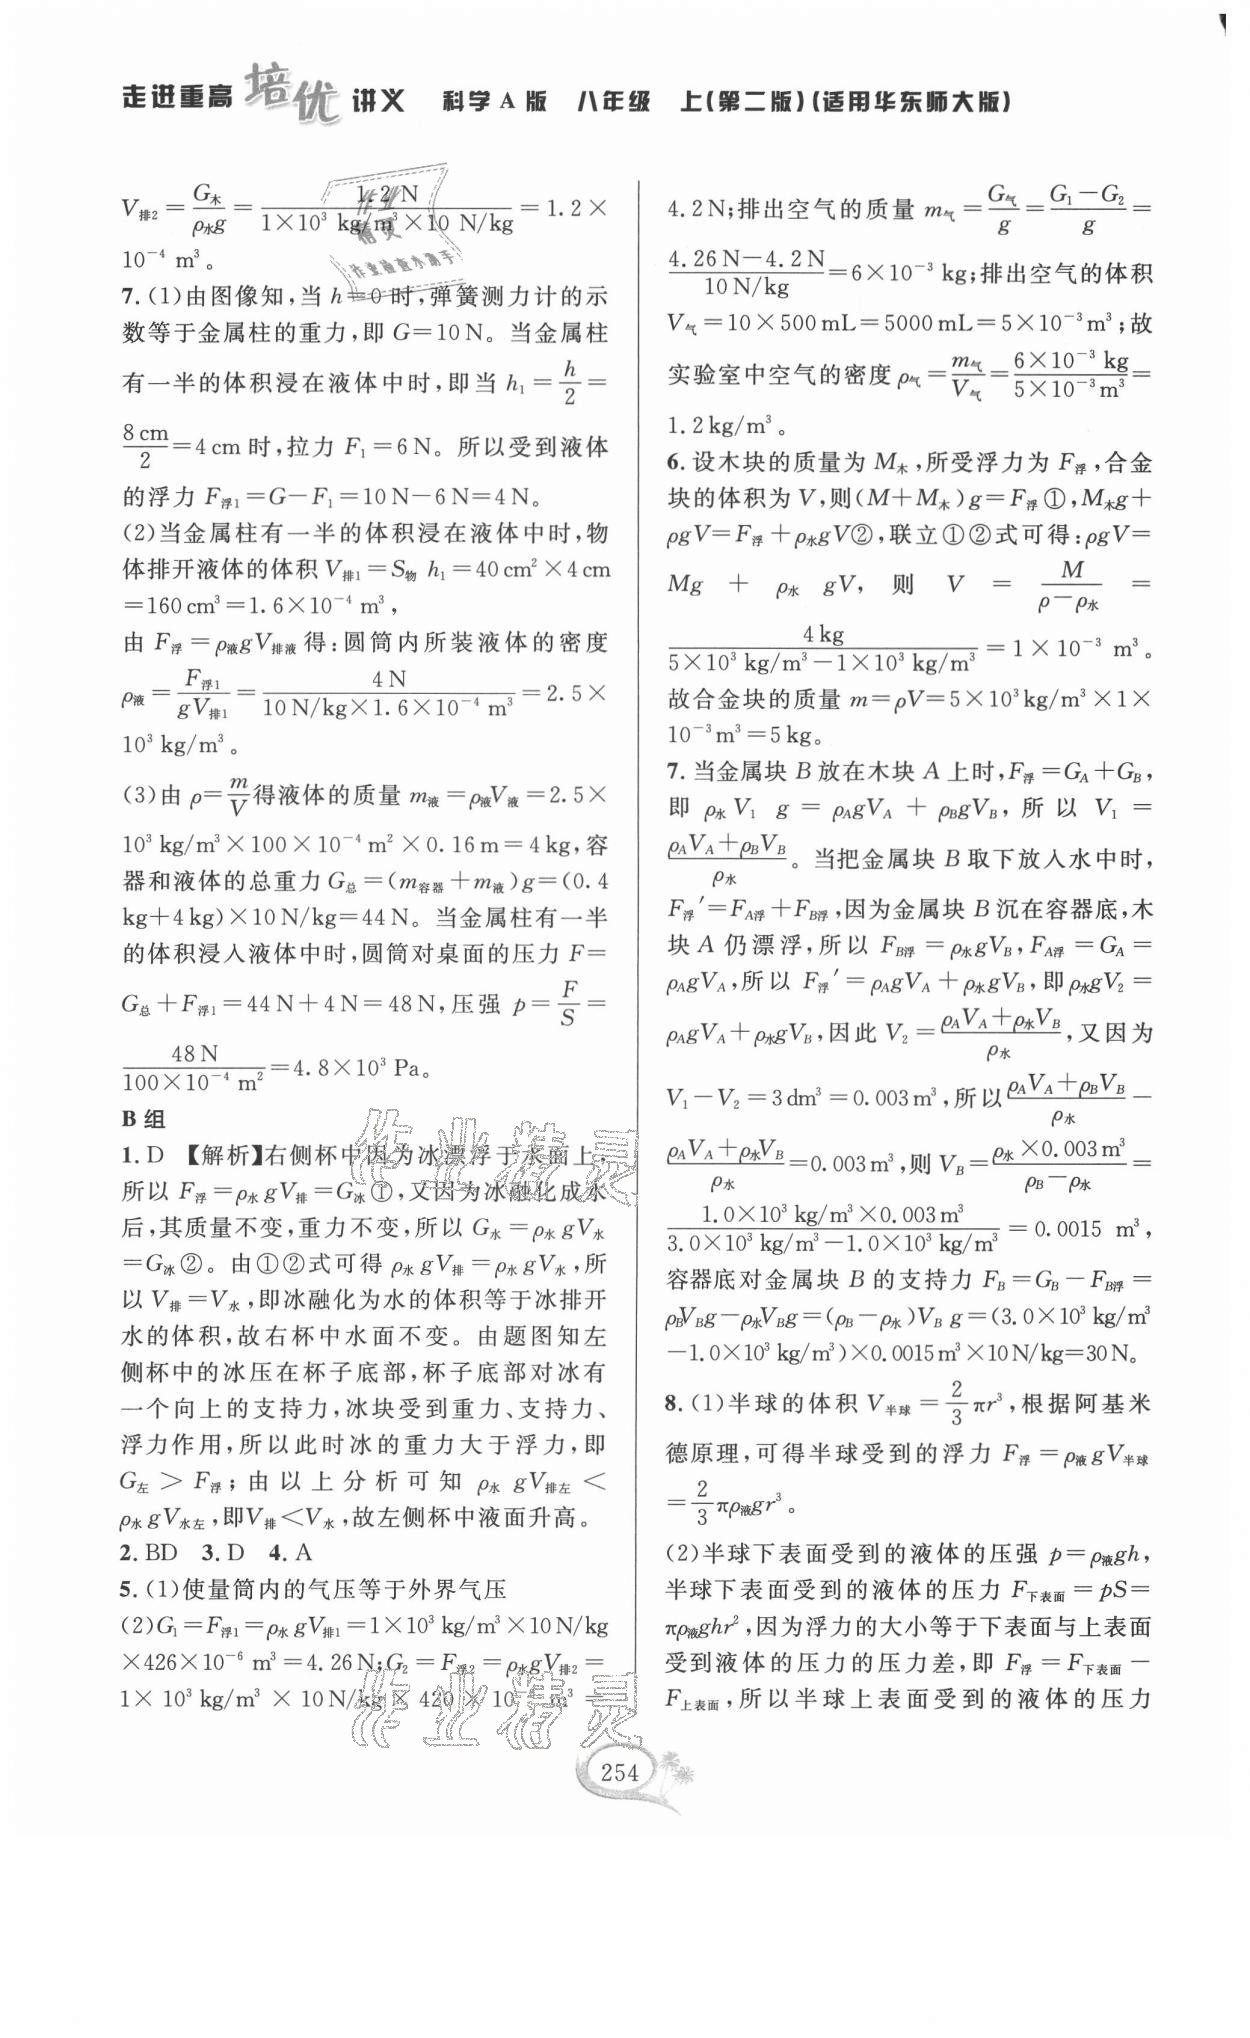 走进重高培优讲义 科学A版 八年级 上(第二版)(适用华东师大版)
V排2=G木/ρ水g=1.2 N/(1×10³ kg/m³×10 N/kg)=1.2×
10⁻⁴ m³。
7.(1)由图像知,当h=0时,弹簧测力计的示
数等于金属柱的重力,即G=10N。当金属柱
有一半的体积浸在液体中时,即当h₁=h/2=
8 cm/2=4cm时,拉力F₁=6N。所以受到液体
的浮力F浮1=G-F₁=10N-6N=4N。
(2)当金属柱有一半的体积浸在液体中时,物
体排开液体的体积V排1=S物 h₁=40cm²×4cm
=160cm³=1.6×10⁻⁴ m³,
由F浮=ρ液gV排液得:圆筒内所装液体的密度
ρ液=F浮1/gV排1=4 N/(10 N/kg×1.6×10⁻⁴ m³)=2.5×
10³ kg/m³。
(3)由ρ=m/V得液体的质量m液=ρ液V液=2.5×
10³ kg/m³×100×10⁻⁴ m²×0.16m=4kg,容
器和液体的总重力G总=(m容器+m液)g=(0.4
kg+4kg)×10N/kg=44N。当金属柱有一半
的体积浸入液体中时,圆筒对桌面的压力F=
G总+F浮1=44N+4N=48N,压强p=F/S=
48 N/(100×10⁻⁴ m²)=4.8×10³ Pa。
B组
1.D 【解析】右侧杯中因为冰漂浮于水面上,
所以F浮=ρ水gV排=G冰①,又因为冰融化成水
后,其质量不变,重力不变,所以G水=ρ水gV水
=G冰②。由①②式可得ρ水gV排=ρ水gV水,所
以V排=V水,即冰融化为水的体积等于冰排开
水的体积,故右杯中水面不变。由题图知左
侧杯中的冰压在杯子底部,杯子底部对冰有
一个向上的支持力,冰块受到重力、支持力、
浮力作用,所以此时冰的重力大于浮力,即
G左>F浮;由以上分析可知ρ水gV排左<
ρ水gV水左,即V排<V水,故左侧杯中液面升高。
2.BD 3.D 4.A
5.(1)使量筒内的气压等于外界气压
(2)G₁=F浮1=ρ水gV排1=1×10³ kg/m³×10N/kg
×426×10⁻⁶ m³=4.26N;G₂=F浮2=ρ水gV排2=
1×10³ kg/m³×10N/kg×420×10⁻⁶ m³=
4.2N;排出空气的质量m气=G气/g=(G₁-G₂)/g=
(4.26N-4.2N)/(10N/kg)=6×10⁻³ kg;排出空气的体积
V气=10×500mL=5000mL=5×10⁻³m³;故
实验室中空气的密度ρ气=m气/V气=(6×10⁻³ kg)/(5×10⁻³m³)=
1.2kg/m³。
6.设木块的质量为M木,所受浮力为F浮,合金
块的体积为V,则(M+M木)g=F浮①,M木g+
ρgV=F浮+ρ水gV②,联立①②式可得:ρgV=
Mg+ρ水gV,则V=M/(ρ-ρ水)=
4kg/(5×10³ kg/m³-1×10³ kg/m³)=1×10⁻³ m³。
故合金块的质量m=ρV=5×10³kg/m³×1×
10⁻³m³=5kg。
7.当金属块B放在木块A上时,F浮=GA+GB,
即ρ水V₁g=ρAgVA+ρBgVB,所以V₁=
(ρAVA+ρBVB)/ρ水。当把金属块B取下放入水中时,
F浮′=FA浮+FB浮,因为金属块B沉在容器底,木
块A仍漂浮,所以FB浮=ρ水gVB,FA浮=GA=
ρAgVA,所以F浮′=ρAgVA+ρ水gVB,即ρ水gV₂=
ρAgVA+ρ水gVB,因此V₂=(ρAVA+ρ水VB)/ρ水,又因为
V₁-V₂=3dm³=0.003m³,所以(ρAVA+ρBVB)/ρ水-
(ρAVA+ρ水VB)/ρ水=0.003m³,则VB=(ρ水×0.003m³)/(ρB-ρ水)=
(1.0×10³ kg/m³×0.003m³)/(3.0×10³ kg/m³-1.0×10³ kg/m³)=0.0015 m³,
容器底对金属块B的支持力FB=GB-FB浮=
ρBVBg-ρ水VBg=(ρB-ρ水)VBg=(3.0×10³ kg/m³
-1.0×10³ kg/m³)×0.0015m³×10N/kg=30N。
8.(1)半球的体积V半球=2/3πr³,根据阿基米
德原理,可得半球受到的浮力F浮=ρ液gV半球
=2/3πρ液gr³。
(2)半球下表面受到的液体的压强p=ρ液gh,
半球下表面受到的液体的压力F下表面=pS=
πρ液ghr²,因为浮力的大小等于下表面与上表面
受到液体的压力的压力差,即F浮=F下表面-
F上表面,所以半球上表面受到的液体的压力
254
作业精灵
作业精灵
作业检查小高手